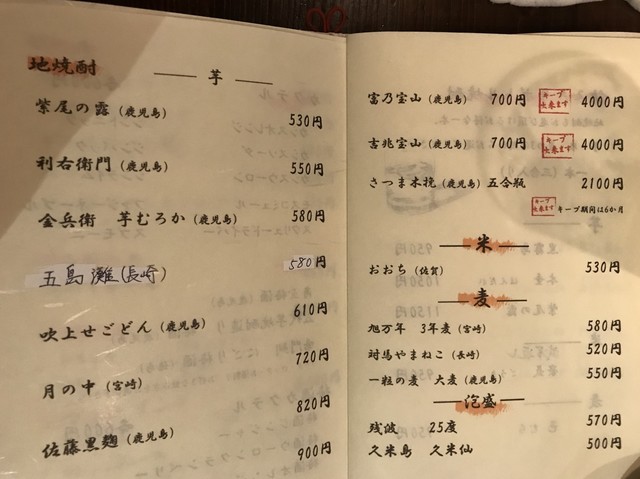 地焼酎
芋
紫尾の露 (鹿児島) 530円
利右衛門 (鹿児島) 550円
金兵衛 芋むろか (鹿児島) 580円
五島灘 (長崎) 580円
吹上せごどん (鹿児島) 610円
月の中 (宮崎) 720円
佐藤黒麹 (鹿児島) 820円
900円
富乃宝山 (鹿児島) 700円 キープ出来ます 4000円
吉兆宝山 (鹿児島) 700円 キープ出来ます 4000円
さつま木挽 (鹿児島) 五合瓶 2100円
キープ出来ます キープ期間は6か月
米
おおち (佐賀) 530円
麦
旭万年 3年麦 (宮崎) 580円
対馬やまねこ (長崎) 520円
一粒の麦 大麦 (鹿児島) 550円
泡盛
残波 25度 570円
久米島 久米仙 500円